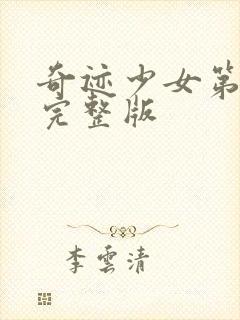 奇迹少女第
完整版
李雲清